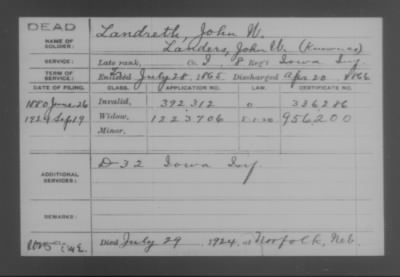 DEAD
NAME OF SOLDIER: Landreth, John W.
Landers, John W. (Known as)
SERVICE: Late rank, Co. I, 8 Reg't Iowa Inf.
TERM OF SERVICE: Enlisted July 28, 1865 Discharged Apr 20, 1866
DATE OF FILING. CLASS. APPLICATION NO. LAW. CERTIFICATE NO.
1880 June 26 Invalid, 392312 336286
1924 Sep 19 Widow, 1223706 956200
Minor,
ADDITIONAL SERVICES: D-32 Iowa Inf.
REMARKS:
Died July 29, 1924, at Norfolk, Neb.